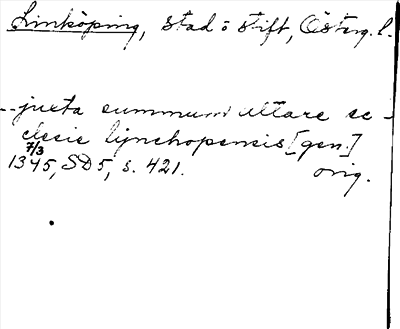 Linköping, stad o stift, Österg. l.
--juxta summum altare ec-
clesie lijnchopensis [gen.]
7/3
1345, SD5, s. 421. orig.